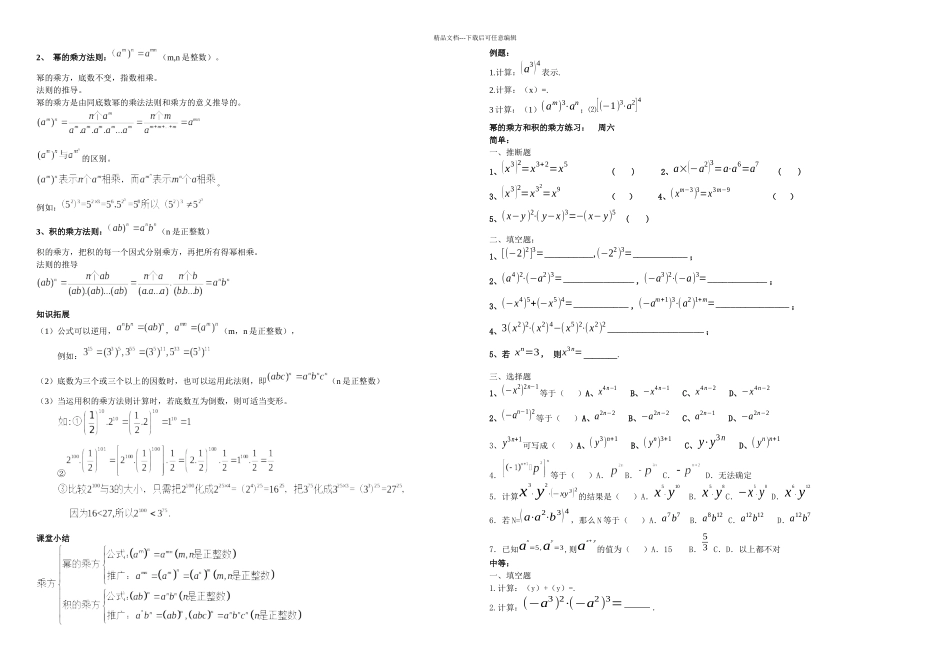 精品文档---下载后可任意编辑
2、 幂的乘方法则:(a^m)^n=a^{mn}(m,n是整数)。
幂的乘方,底数不变,指数相乘。
法则的推导。
幂的乘方是由同底数幂的乘法法则和乘方的意义推导的。
(a^m)^n= n个a^m / a^m.a^m.a^m.a^m...a^m = n个m / a^{m+m+ +m} =a^{mn}
(a^m)^n与a^{m^n}的区别。
(a^m)^n表示n个a^m相乘,而a^{m^n}表示m^n个a相乘。
例如:
3、积的乘方法则:(ab)^n=a^nb^n(n是正整数)
积的乘方,把积的每一个因式分别乘方,再把所有得幂相乘。
法则的推导
(ab)^n= n个ab / (ab).(ab)...(ab) = n个a / (a.a...a) . n个b / (b.b...b) =a^nb^n
知识拓展
(1)公式可以逆用,a^nb^n=(ab)^n,a^{mn}=(a^m)^n(m,n是正整数),
例如:
(2)底数为三个或三个以上的因数时,也可以运用此法则,即(abc)^n=a^nb^nc^n(n是正整数)
(3)当运用积的乘方法则计算时,若底数互为倒数,则可适当变形。
如:①(1/2)^{10}.2^{10}=(1/2.2)^{10}=1^{10}=1
② 2^{100}.(1/2)^{101}=2^{100}.(1/2)^{100}.1/2=(2.1/2)^{100}.1/2=1^{100}.1/2=1/2
③比较2^{100}与3^{75}的大小,只需把2^{100}化成2^{100}=2^{25×4}=(2^4)^{25}=16^{25},把3^{75}化成3^{25×3}=(3^3)^{25}=27^{25},
因为16<27,所以2^{100}<3^{75}.
课堂小结
乘方
幂的乘方
公式:(a^m)^n=a^{mn}(m,n是正整数)
推广:a^{mn}=(a^m)^n=(a^n)^m(m,n是正整数)
积的乘方
公式:(ab)^n=a^nb^n(n是正整数)
推广:a^nb^n=(ab)^n,(abc)^n=a^nb^nc^n(n是正整数)
例题:
1.计算:(a^3)^4表示.
2.计算:(x)=.
3计算:(1)(a^m)^3·a^n;⑵[(−1)^3·a^2]^4
幂的乘方和积的乘方练习: 周六
简单:
一、推断题
1、(x^3)^2=x^{3+2}=x^5 ( ) 2、a×(−a^2)^3=a·a^6=a^7 ( )
3、(x^3)^2=x^{3^2}=x^9 ( ) 4、(x^{m−3})^3=x^{3m−9} ( )
5、(x−y)^2·(y−x)^3=−(x−y)^5 ( )
二、填空题:
1、[(−2)^2]^3=____________,(−2^2)^3=____________;
2、(a^4)^2·(−a^2)^3=_______________,(−a^3)^2·(−a)^3=_____________;
3、(−x^4)^5+(−x^5)^4=____________,(−a^{m+1})^3·(a^2)^{1+m}=________________;
4、3(x^2)^2·(x^2)^4−(x^5)^2·(x^2)^2_____________________;
5、若 x^n=3, 则x^{3n}=________.
三、选择题
1、(−x^2)^{2n−1}等于( )A、x^{4n−1} B、−x^{4n−1} C、x^{4n−2} D、−x^{4n−2}
2、(−a^{n−1})^2等于( )A、a^{2n−2} B、−a^{2n−2} C、a^{2n−1} D、−a^{2n−2}
3、y^{3n+1}可写成( )A、(y^3)^{n+1} B、(y^n)^{3+1} C、y·y^{3n} D、(y^n)^{n+1}
4.等于( )A. B. C. D.无法确定
5.计算x^3y^2·(−xy^3)^2的结果是( )A.x^5·y^{10} B.x^5·y^8 C.−x^5·y^8 D.x^6·y^{12}
6.若N=(a·a^2·b^3)^4,那么N等于( )A.a^7b^7 B.a^8b^{12} C.a^{12}b^{12} D.a^{12}b^7
7.已知a^x=5,a^y=3,则a^{x+y}的值为( )A.15 B.5/3 C.D.以上都不对
中等:
一、填空题
1.计算:(y)+(y)=.
2.计算:(−a^3)^2·(−a^2)^3=______.